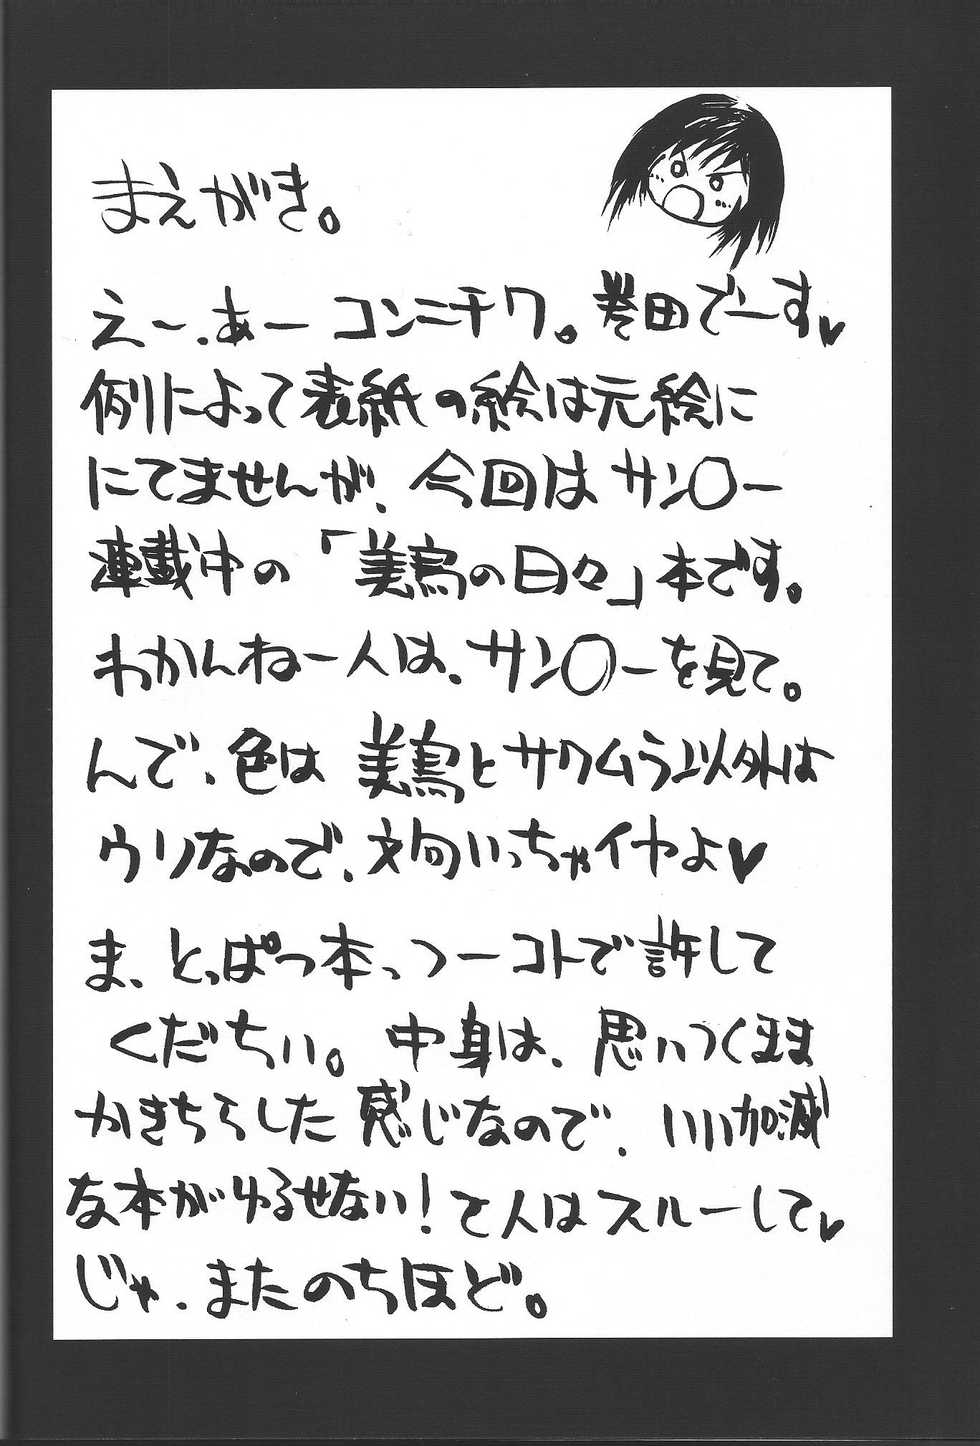 まえがき。
えー、あーコンニチワ。巻田でーす♥
例によって表紙の絵は元絵に
にてませんが、今回はサン〇ー
連載中の「美鳥の日々」本です。
わかんねー人は、サン〇ーを見て。
んで、色は美鳥とサクムラ以外は
ウリなので、文句いっちゃイヤよ♥
ま、とっぱつ本っつーコトで許して
くだちい。中身は、思いつくまま
かきちらした感じなので、いい加減
な本がゆるせない！て人はスルーして♥
じゃ、またのちほど。